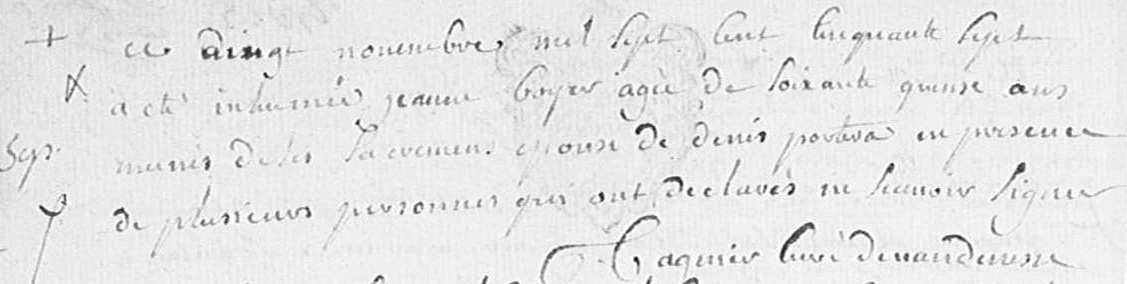 + ce vingt novembre mil sept cent cinquante sept
a eté inhumée jeanne boyer agée de soixante quinse ans
Sep. munis de ses sacremens epouse de denis portera en presence
de plusieurs personnes qui ont declarés ne scavoir signer
curé de vandenesse